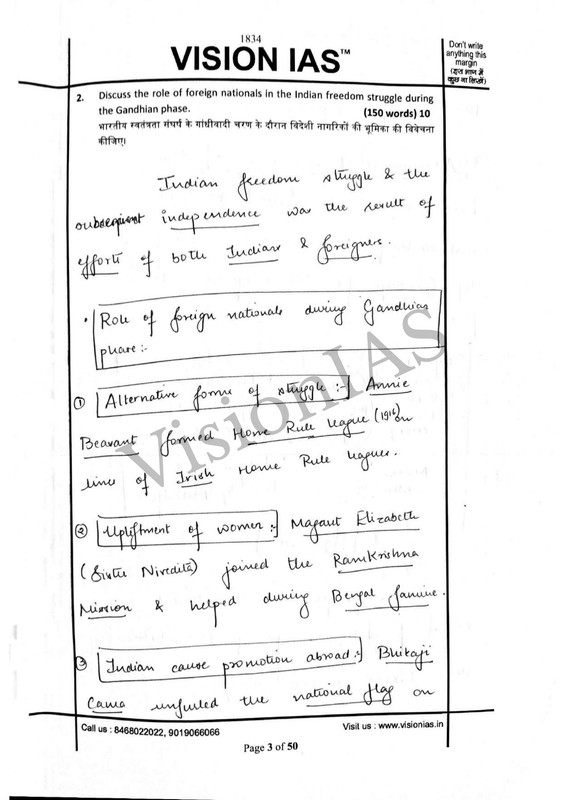 1834
VISION IAS™
Don't write
anything this
margin
(इस भाग में
कुछ ना लिखें)
2. Discuss the role of foreign nationals in the Indian freedom struggle during
the Gandhian phase. (150 words) 10
भारतीय स्वतंत्रता संघर्ष के गांधीवादी चरण के दौरान विदेशी नागरिकों की भूमिका की विवेचना
कीजिए।
Indian freedom struggle & the
subsequent independence was the result of
efforts of both Indians & foreigners.
• Role of foreign nationals during Gandhian
phase:-
① Alternative forms of struggle:- Annie
Beasant formed Home Rule League (1916) on
line of Irish Home Rule leagues.
② Upliftment of women:- Magaret Elizabeth
(Sister Nivedita) joined the RamKrishna
Mission & helped during Bengal famine.
③ Indian cause promotion abroad:- Bhikaji
Cama unfurled the national flag on
VisionIAS
Call us : 8468022022, 9019066066
Visit us : www.visionias.in
Page 3 of 50